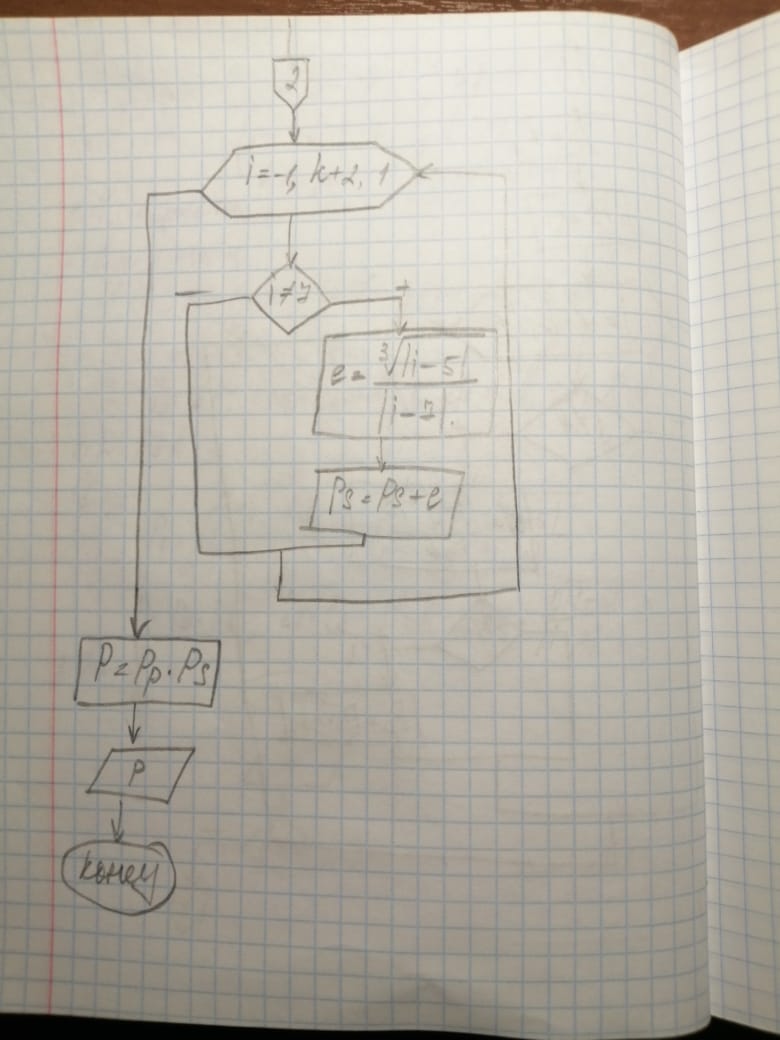 2
i=-1, k+2, 1
i≠7
—
+
e = ∛|i-5| / |i-7|
Ps = Ps + e
P = Pp · Ps
P
конец